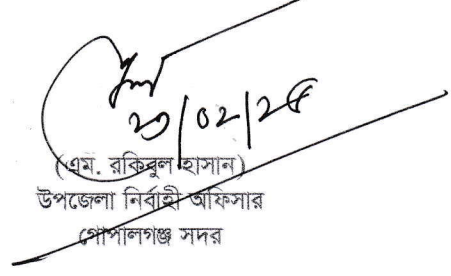 ২৩/০২/২৫
(এম. রকিবুল হাসান)
উপজেলা নির্বাহী অফিসার
গোপালগঞ্জ সদর